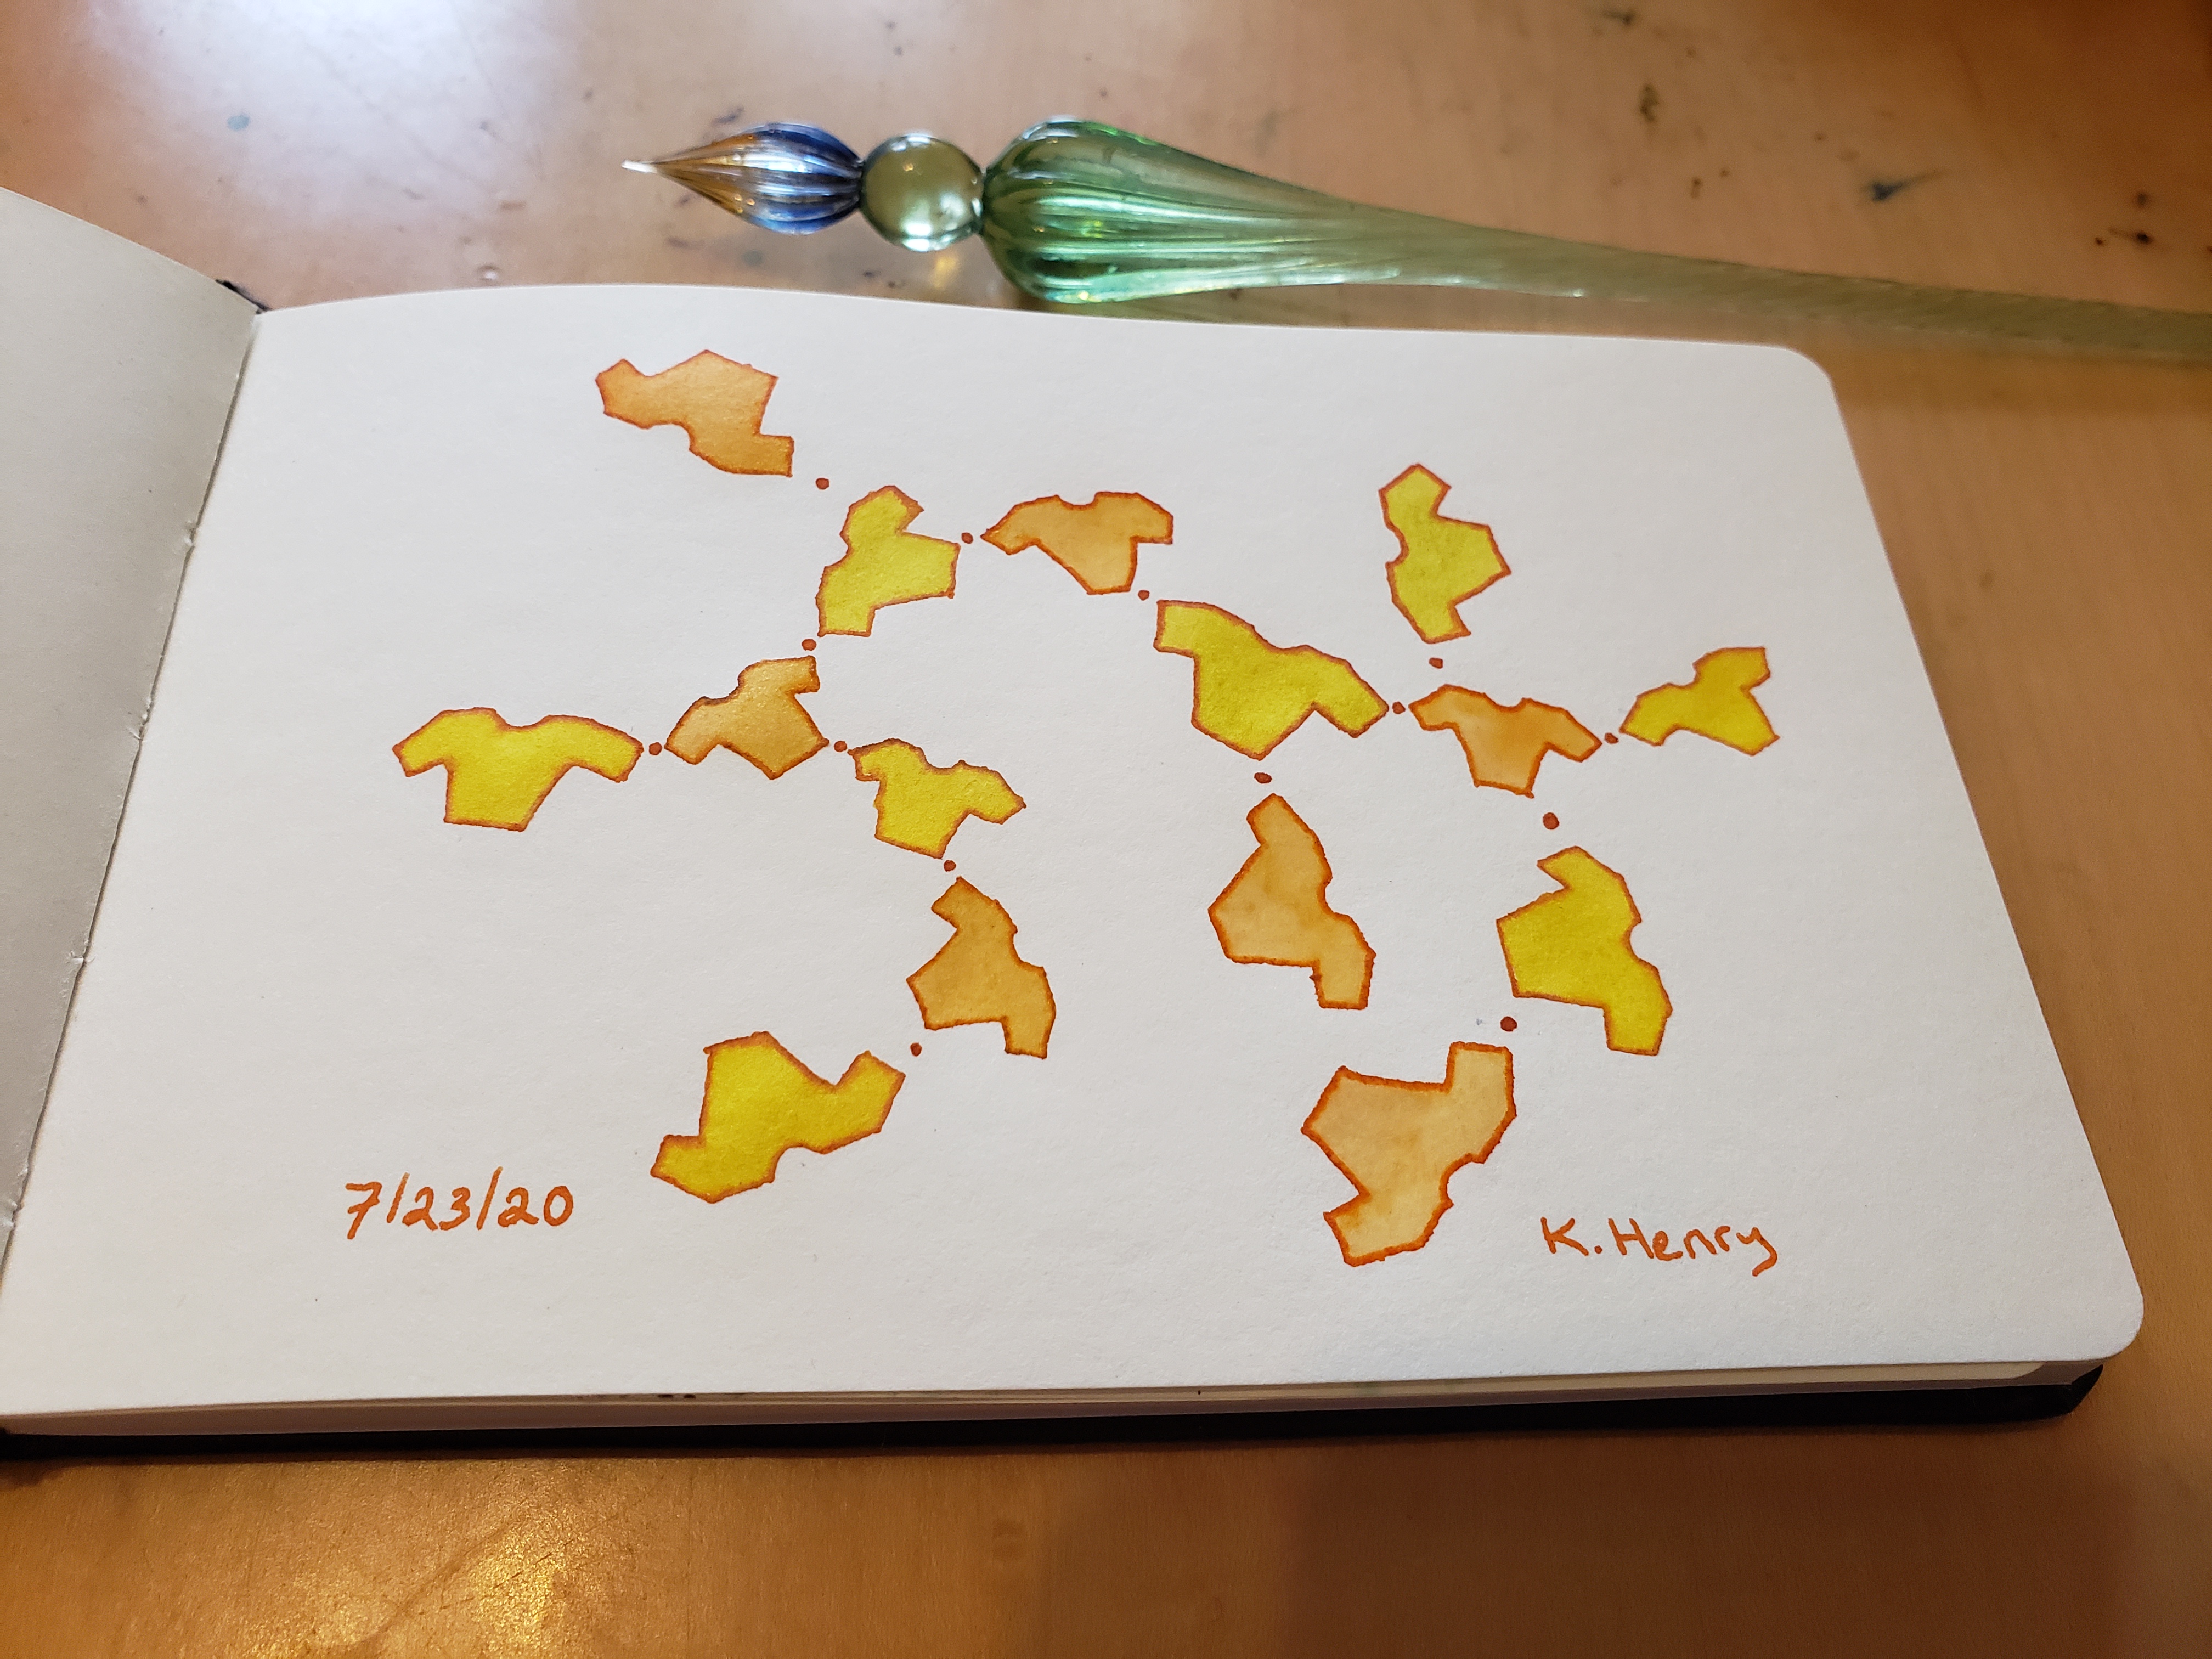 7/23/20
K. Henry